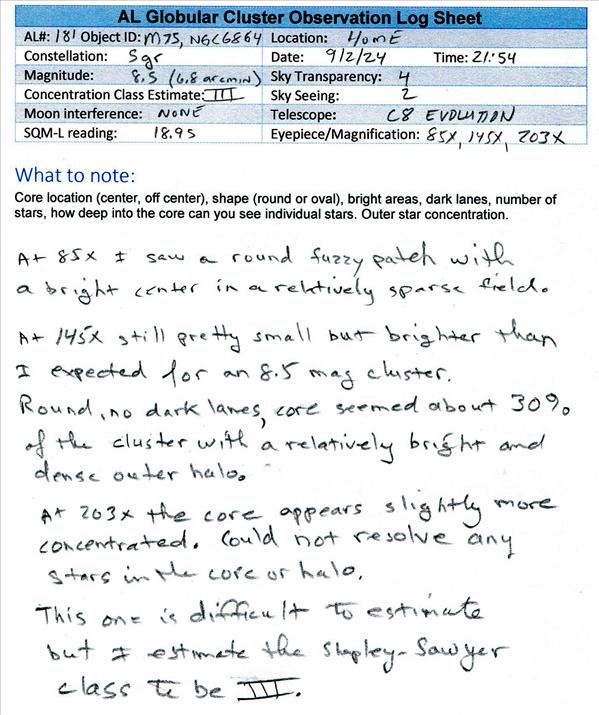 AL Globular Cluster Observation Log Sheet
AL#: 181 Object ID: M75, NGC6864 Location: HOME
Constellation: Sgr Date: 9/2/24 Time: 21:54
Magnitude: 8.5 (6.8 arcmin) Sky Transparency: 4
Concentration Class Estimate: III Sky Seeing: 2
Moon interference: NONE Telescope: C8 EVOLUTION
SQM-L reading: 18.95 Eyepiece/Magnification: 85X, 145X, 203X
What to note:
Core location (center, off center), shape (round or oval), bright areas, dark lanes, number of
stars, how deep into the core can you see individual stars. Outer star concentration.
At 85X I saw a round fuzzy patch with
a bright center in a relatively sparse field.
At 145X still pretty small but brighter than
I expected for an 8.5 mag cluster.
Round, no dark lanes, core seemed about 30%
of the cluster with a relatively bright and
dense outer halo.
At 203x the core appears slightly more
concentrated. Could not resolve any
stars in the core or halo.
This one is difficult to estimate
but I estimate the Shapley-Sawyer
class to be III.